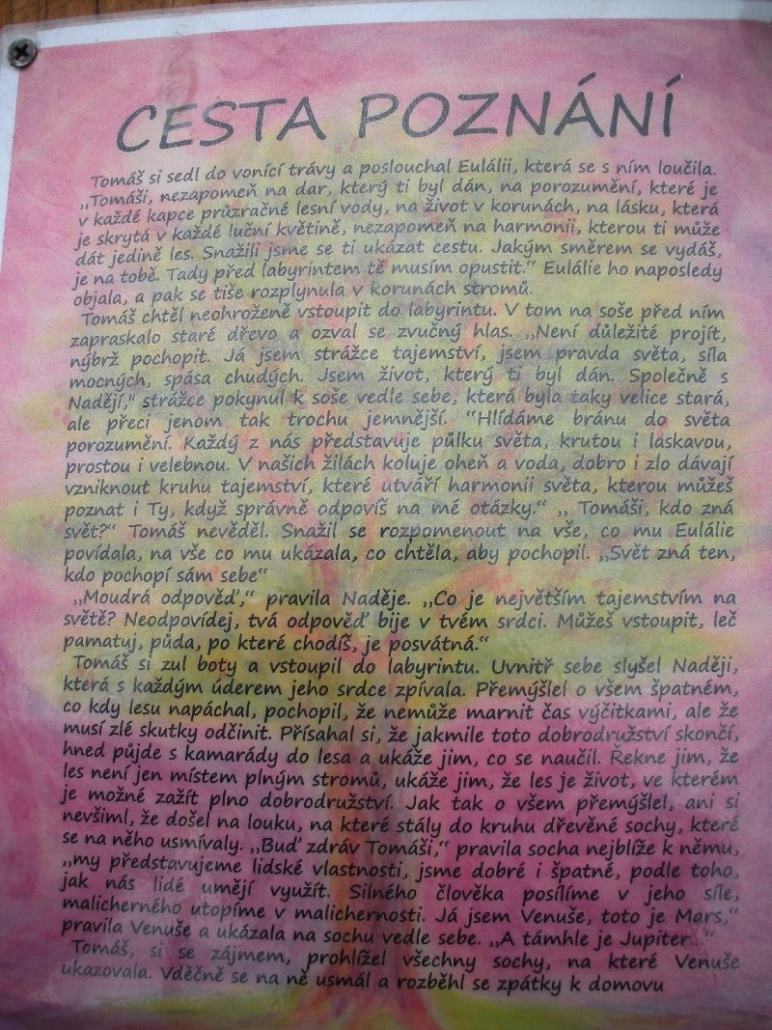 CESTA POZNÁNÍ
Tomáš si sedl do vonící trávy a poslouchal Eulálii, která se s ním loučila.
„Tomáši, nezapomeň na dar, který ti byl dán, na porozumění, které je
v každé kapce průzračné lesní vody, na život v korunách, na lásku, která
je skrytá v každé luční květině, nezapomeň na harmonii, kterou ti může
dát jedině les. Snažili jsme se ti ukázat cestu. Jakým směrem se vydáš,
je na tobě. Tady před labyrintem tě musím opustit.“ Eulálie ho naposledy
objala, a pak se tiše rozplynula v korunách stromů.
Tomáš chtěl neohroženě vstoupit do labyrintu. V tom na soše před ním
zapraskalo staré dřevo a ozval se zvučný hlas. „Není důležité projít,
nýbrž pochopit. Já jsem strážce tajemství, jsem pravda světa, síla
mocných, spása chudých. Jsem život, který ti byl dán. Společně s
Nadějí,“ strážce pokynul k soše vedle sebe, která byla taky velice stará,
ale přeci jenom tak trochu jemnější. “Hlídáme bránu do světa
porozumění. Každý z nás představuje půlku světa, krutou i laskavou,
prostou i velebnou. V našich žilách koluje oheň a voda, dobro i zlo dávají
vzniknout kruhu tajemství, které utváří harmonii světa, kterou můžeš
poznat i Ty, když správně odpovíš na mé otázky.“ „ Tomáši, kdo zná
svět?“ Tomáš nevěděl. Snažil se rozpomenout na vše, co mu Eulálie
povídala, na vše co mu ukázala, co chtěla, aby pochopil. „Svět zná ten,
kdo pochopí sám sebe“
„Moudrá odpověď,“ pravila Naděje. „Co je největším tajemstvím na
světě? Neodpovídej, tvá odpověď bije v tvém srdci. Můžeš vstoupit, leč
pamatuj, půda, po které chodíš, je posvátná.“
Tomáš si zul boty a vstoupil do labyrintu. Uvnitř sebe slyšel Naději,
která s každým úderem jeho srdce zpívala. Přemýšlel o všem špatném,
co kdy lesu napáchal, pochopil, že nemůže marnit čas výčitkami, ale že
musí zlé skutky odčinit. Přísahal si, že jakmile toto dobrodružství skončí,
hned půjde s kamarády do lesa a ukáže jim, co se naučil. Řekne jim, že
les není jen místem plným stromů, ukáže jim, že les je život, ve kterém
je možné zažít plno dobrodružství. Jak tak o všem přemýšlel, ani si
nevšiml, že došel na louku, na které stály do kruhu dřevěné sochy, které
se na něho usmívaly. „Buď zdráv Tomáši,“ pravila socha nejblíže k němu,
„my představujeme lidské vlastnosti, jsme dobré i špatné, podle toho,
jak nás lidé umějí využít. Silného člověka posílíme v jeho síle,
malicherného utopíme v malichernosti. Já jsem Venuše, toto je Mars,“
pravila Venuše a ukázala na sochu vedle sebe. „A támhle je Jupiter...“
Tomáš, si se zájmem, prohlížel všechny sochy, na které Venuše
ukazovala. Vděčně se na ně usmál a rozběhl se zpátky k domovu